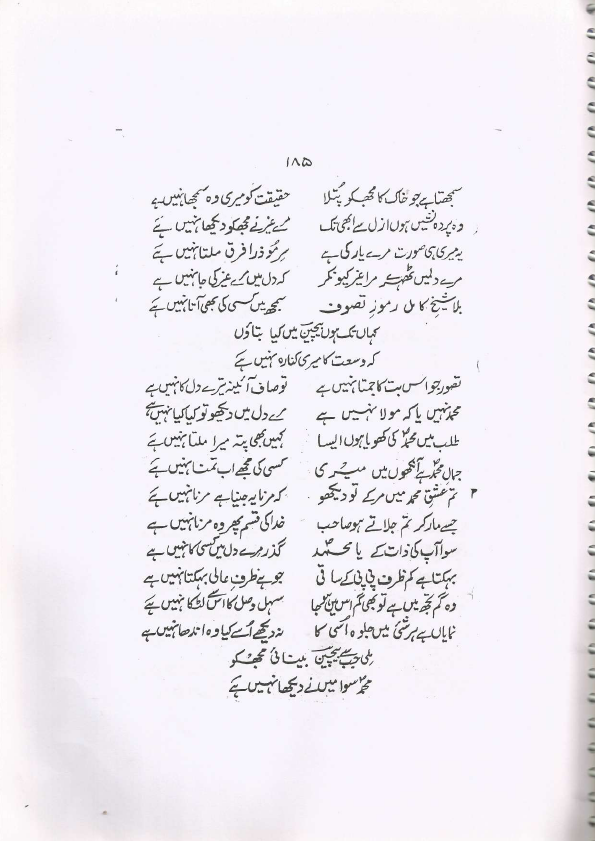 ۱۸۵
سمجھتا ہے جو خاک کا مجھکو پُتلا حقیقت کو میری وہ سمجھا نہیں ہے
وہ پردہ نشیں ہوں ازل سے ابھی تک مرے غیر نے مجھکو دیکھا نہیں ہے
یہ میری ہی صورت مرے یار کی ہے سرِ مُو ذرا فرق ملتا نہیں ہے
مرے دلمیں ٹھہرے مرا غیر کیونکر کہ دل میں مرے غیر کی جا نہیں ہے
بلا شیخِ کامل رموزِ تصوف سمجھ میں کسی کی بھی آتا نہیں ہے
کہاں تک ہوں بیچین میں کیا بتاؤں
کہ وسعت کا میری کنارہ نہیں ہے
تصور جو اس بت کا جمتا نہیں ہے تو صاف آئینہ تیرے دل کا نہیں ہے
محمدؐ نہیں یا کہ مولا نہیں ہے مرے دل میں دیکھو تو کیا کیا نہیں ہے
طلب میں محمدؐ کی کھویا ہوں ایسا کہیں بھی پتہ میرا ملتا نہیں ہے
جمالِ محمدؐ ہے آنکھوں میں میری کسی کی مجھے اب تمنا نہیں ہے
تم عشقِ محمدؐ میں مر کے تو دیکھو کہ مرنا یہ جینا ہے مرنا نہیں ہے
جسے مار کر تم جلاتے ہو صاحب خدا کی قسم پھر وہ مرتا نہیں ہے
سوا آپ کی ذات کے یا محمدؐ گذر مرے دل میں کسی کا نہیں ہے
بہکتا ہے کم ظرف پی پی کے ساقی جو ہے ظرفِ عالی بہکتا نہیں ہے
وہ گم تجھ میں ہے تو بھی گم اس میں ہو جا سہل وصل کا اس سے لٹکا نہیں ہے
نمایاں ہے ہر شئی میں جلوہ اُسی کا نہ دیکھے اُسے کیا وہ اندھا نہیں ہے
ملی جب سے بیچین بینائی مجھکو
محمدؐ سوا میں نے دیکھا نہیں ہے